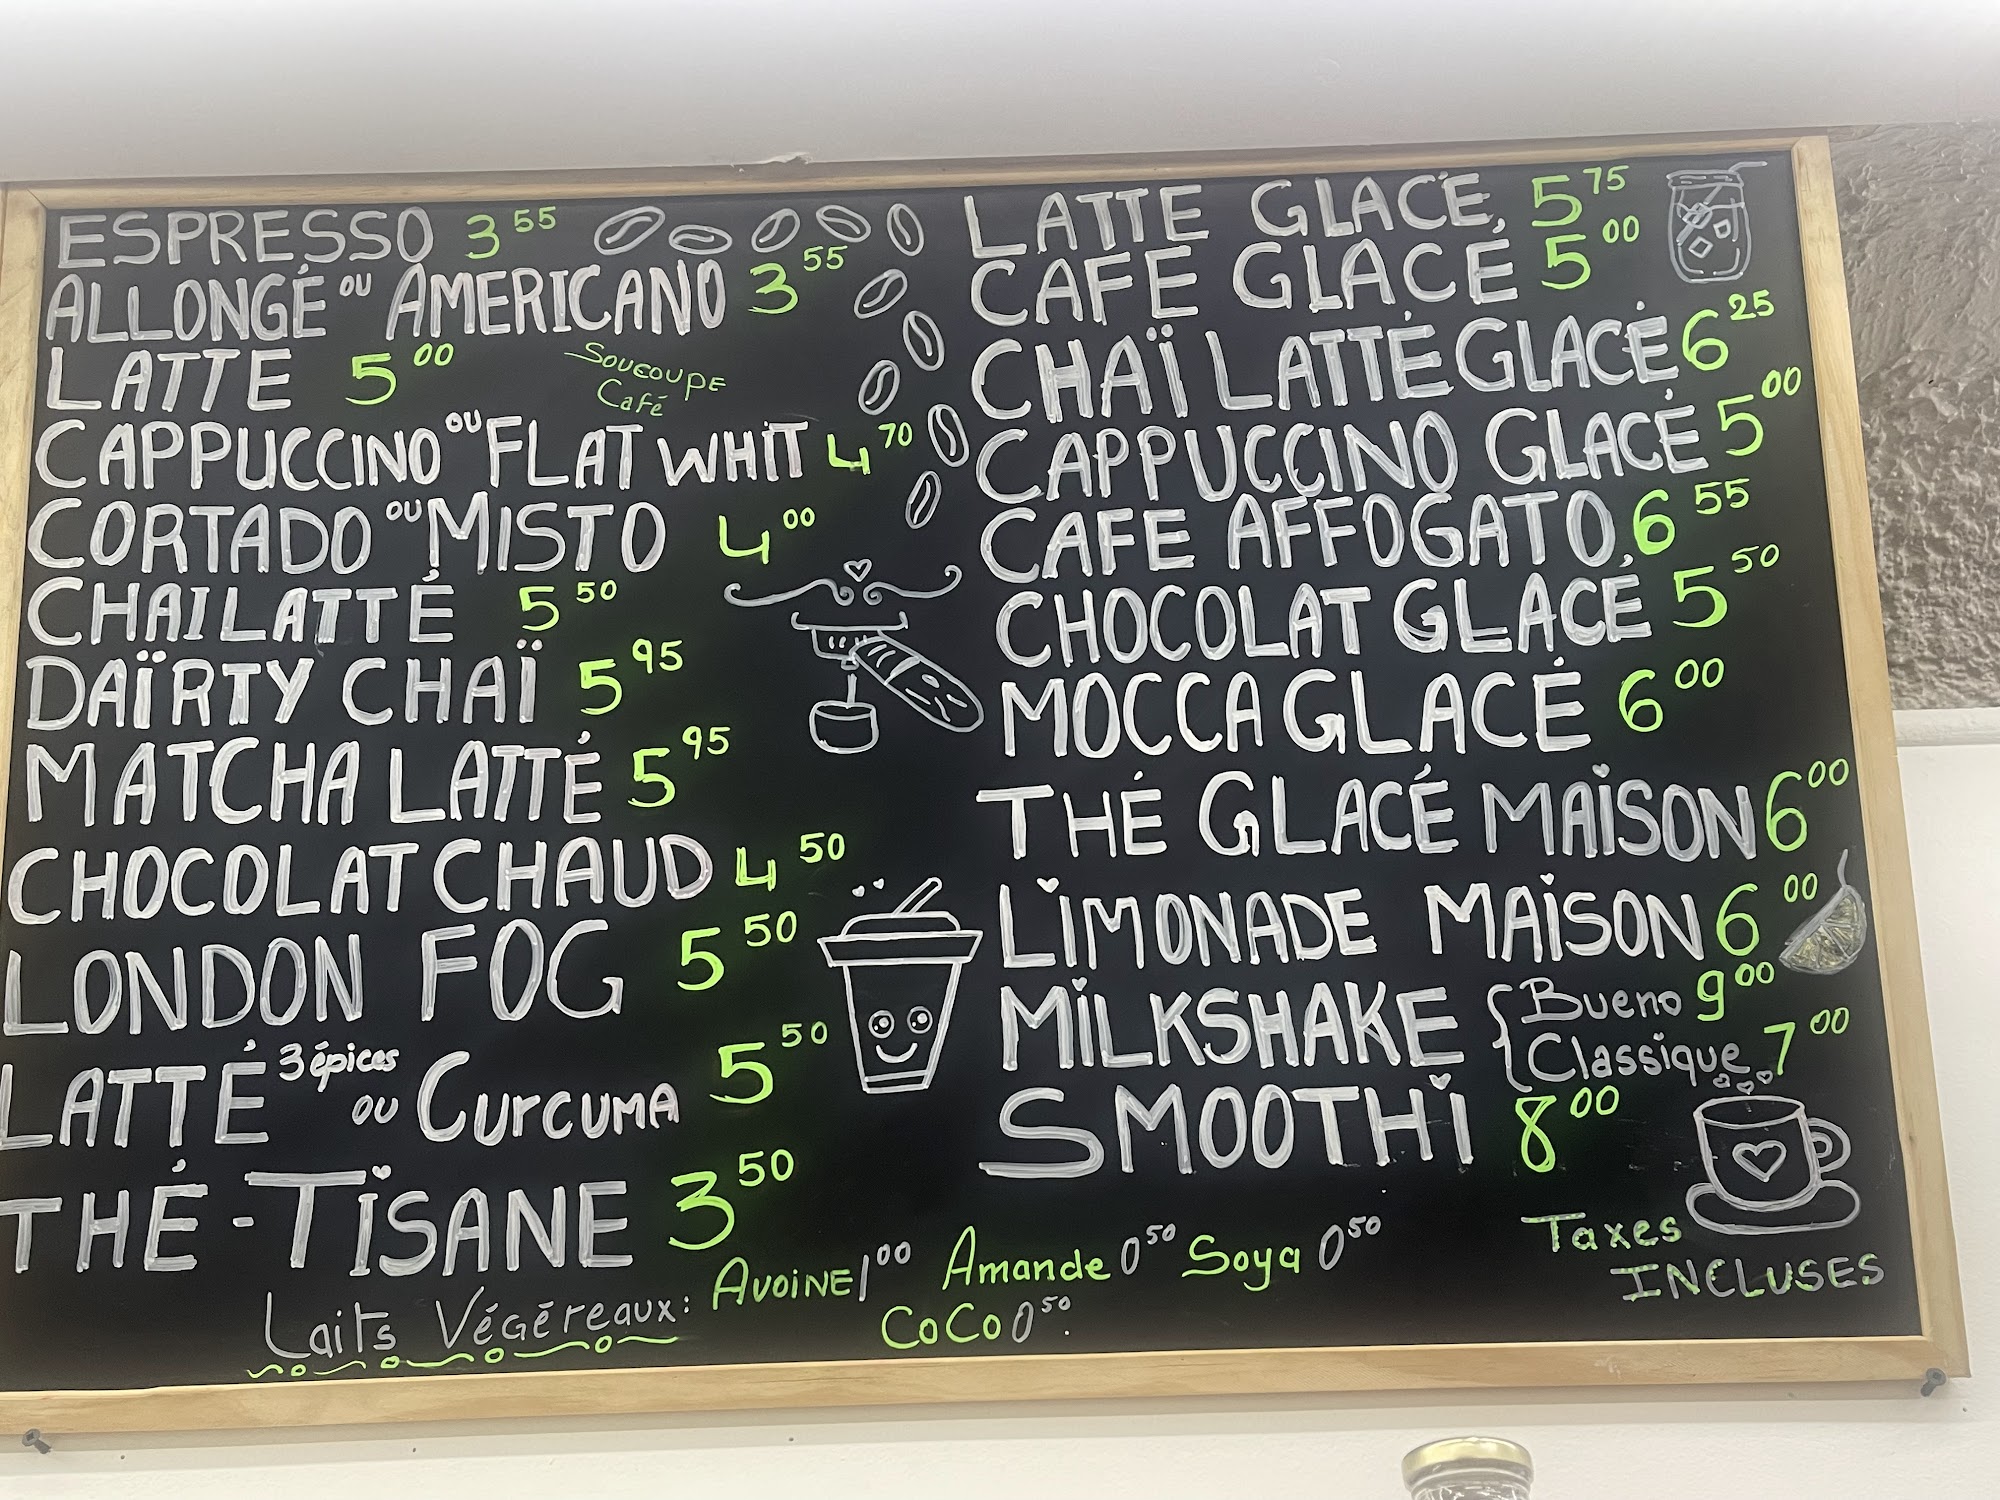 ESPRESSO 3.55
ALLONGÉ OU AMERICANO 3.55
LATTE 5.00
SOUCOUPE
Café
CAPPUCCINO OU FLAT WHIT 4.70
CORTADO OU MISTO 4.00
CHAI LATTÉ 5.50
DAÏRTY CHAÏ 5.95
MATCHA LATTÉ 5.95
CHOCOLAT CHAUD 4.50
LONDON FOG 5.50
LATTÉ 3 épices OU CURCUMA 5.50
THÉ - TISANE 3.50
LATTE GLACÉ 5.75
CAFE GLACÉ 5.00
CHAÏ LATTÉ GLACÉ 6.25
CAPPUCCINO GLACÉ 5.00
CAFE AFFOGATO 6.55
CHOCOLAT GLACÉ 5.50
MOCCA GLACÉ 6.00
THÉ GLACÉ MAISON 6.00
LIMONADE MAISON 6.00
MILKSHAKE { Bueno 9.00
Classique 7.00
SMOOTHI 8.00
Taxes
INCLUSES
Laits Végéreaux: AVOINE 1.00 Amande 0.50 Soya 0.50
CoCo 0.50.